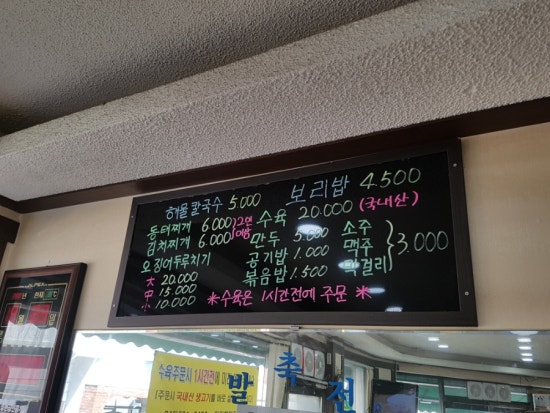 해물칼국수 5.000 보리밥 4.500
동태찌개 6.000
김치찌개 6.000 } 2인 이상
수육 20.000 (국내산)
만두 5.000
공기밥 1.000
볶음밥 1.500
소주
맥주
막걸리 } 3.000
오징어두루치기
大 20.000
中 15.000
小 10.000
※수육은 1시간전에 주문※
수육주문시 1시간전에
(주문시 국내산 생고기를 바로
축 전
발